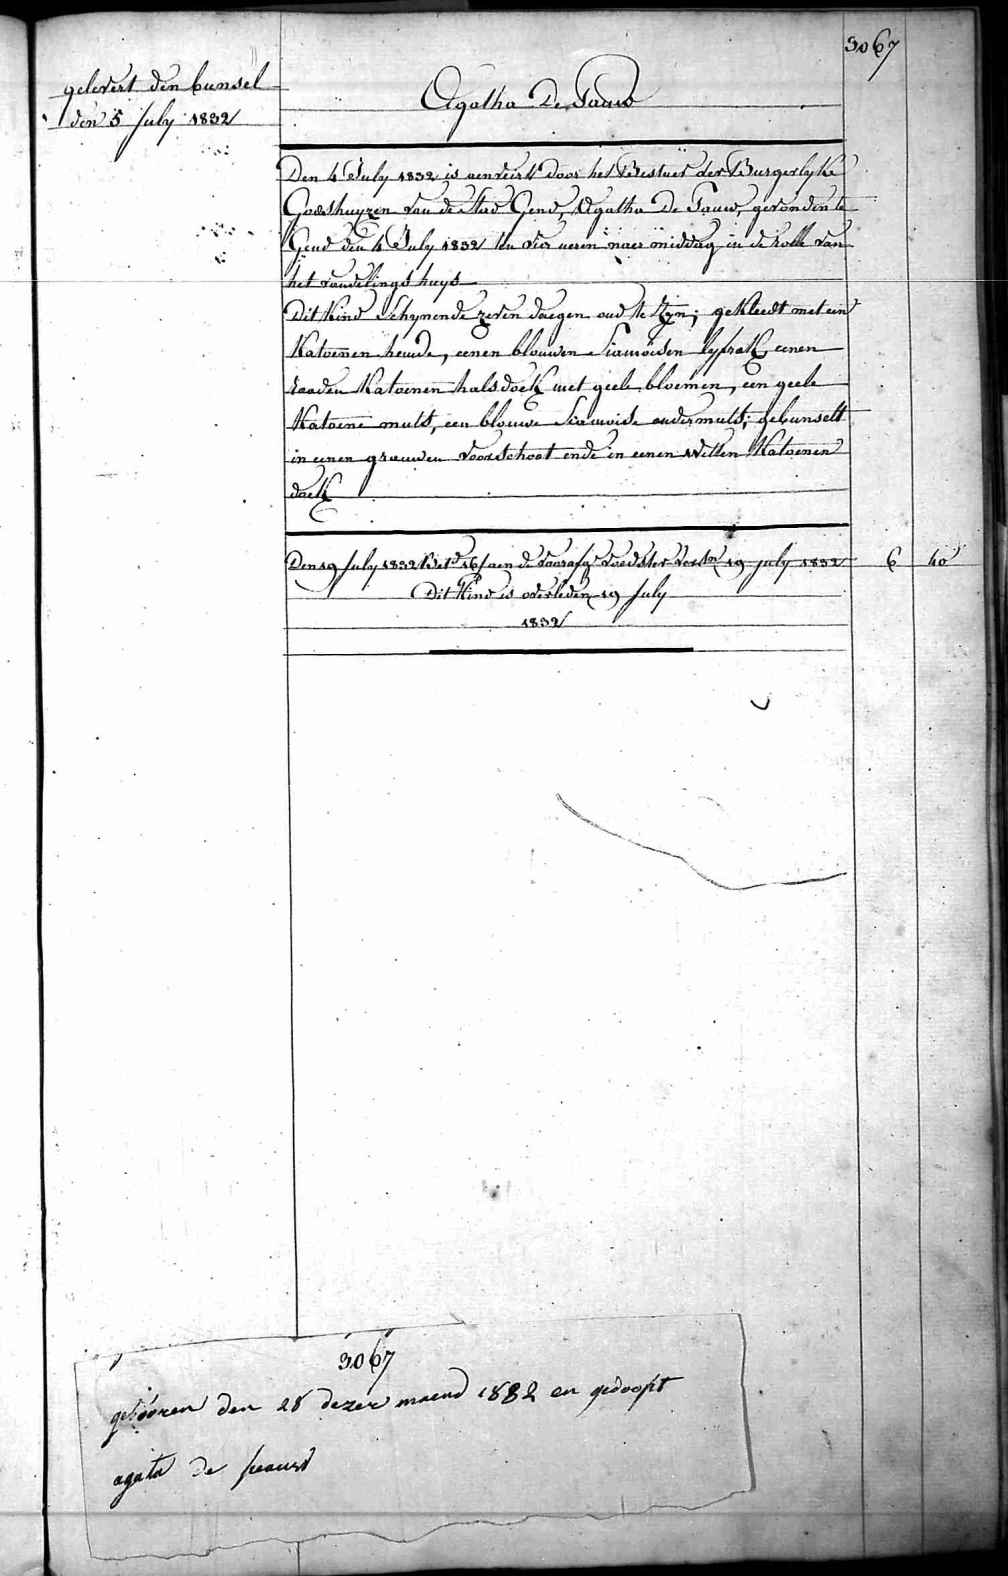 3067
gelevert den bunsel
den 5 July 1832
Agatha De Pauw
Den 4 July 1832 is aenveirt door het Bestuer der Burgerlyke
Godshuyzen van de Stad Gend, Agatha De Pauw, gevonden te
Gend den 4 July 1832 ten vier ueren naer middag in de rolle van
het vondelings huys
Dit Kind schynende zeven daegen oud te Zyn; gekleedt met een
Katoenen hemde, eenen blouwen Siamoisen lyfrok eenen
rooden Katoenen halsdoek met geele bloemen, een geele
Katoene muts, een blouwe Siamoise ondermuts; gebunselt
in eenen grauwen voorschoot ende in eenen witten Katoenen
doek
Den 19 July 1832 Bet.d 16 aen de voedster 19 july 1832 6 40
Dit Kind is overleden 19 July
1832
3067
gebooren den 28 dezer maend 1832 en gedoopt
agata de pauw